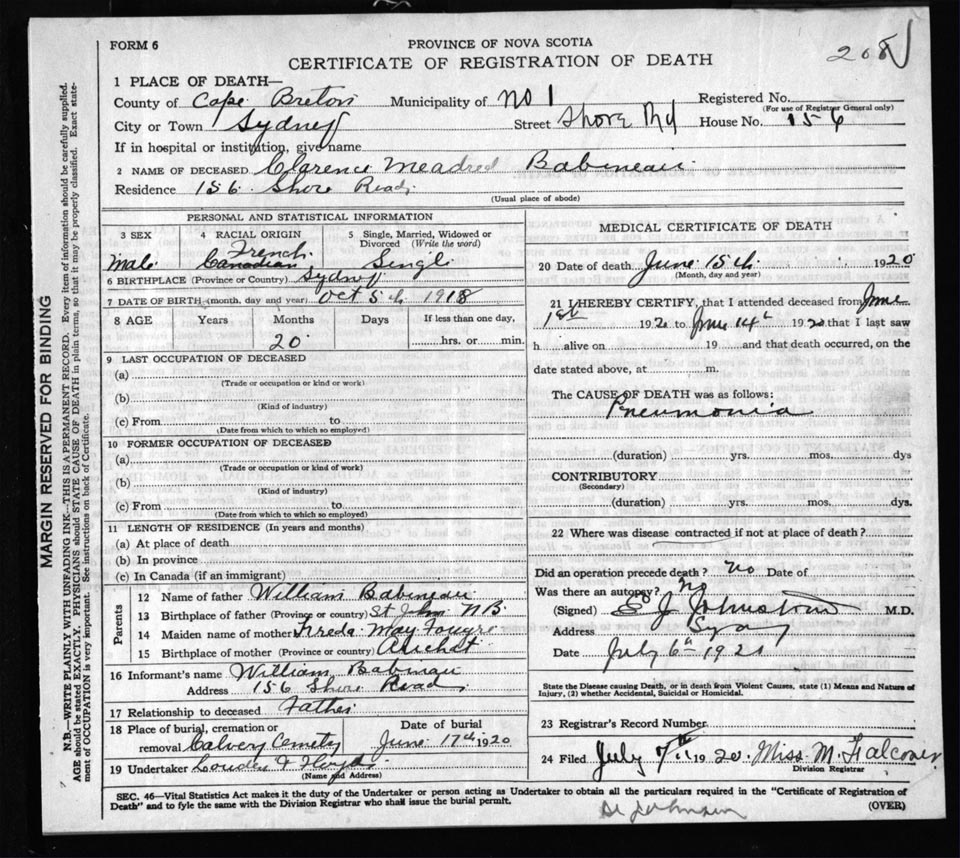 FORM 6
PROVINCE OF NOVA SCOTIA
CERTIFICATE OF REGISTRATION OF DEATH
208
1 PLACE OF DEATH—
County of Cape Breton Municipality of No 1 Registered No.
(For use of Registrar General only)
City or Town Sydney Street Shore Rd House No. 156
If in hospital or institution, give name
2 NAME OF DECEASED Clarence Meadred Babineau
Residence 156 Shore Road
(Usual place of abode)
PERSONAL AND STATISTICAL INFORMATION
3 SEX 4 RACIAL ORIGIN 5 Single, Married, Widowed or Divorced (Write the word)
Male French Canadian Single
6 BIRTHPLACE (Province or Country) Sydney
7 DATE OF BIRTH (month, day and year) Oct 5th 1918
8 AGE Years Months Days If less than one day,
20 hrs. or min.
9 LAST OCCUPATION OF DECEASED
(a)
(Trade or occupation or kind or work)
(b)
(Kind of industry)
(c) From to
(Date from which to which so employed)
10 FORMER OCCUPATION OF DECEASED
(a)
(Trade or occupation or kind of work)
(b)
(Kind of industry)
(c) From to
(Date from which to which so employed)
11 LENGTH OF RESIDENCE (In years and months)
(a) At place of death
(b) In province
(c) In Canada (if an immigrant)
Parents
12 Name of father William Babineau
13 Birthplace of father (Province or country) St John NB
14 Maiden name of mother Freda May
15 Birthplace of mother (Province or country) Arichat
16 Informant's name William Babinau
Address 156 Shore Road
17 Relationship to deceased Father
18 Place of burial, cremation or removal Calvery Cemety
Date of burial June 17th 1920
19 Undertaker
(Name and Address)
MEDICAL CERTIFICATE OF DEATH
20 Date of death June 15th 1920
(Month, day and year)
21 I HEREBY CERTIFY, that I attended deceased from June
1st 1920 to June 14th 1920 that I last saw
h alive on 19 and that death occurred, on the
date stated above, at m.
The CAUSE OF DEATH was as follows:
Pneumonia
(duration) yrs. mos. dys
CONTRIBUTORY
(Secondary)
(duration) yrs. mos. dys.
22 Where was disease contracted if not at place of death?
Did an operation precede death? No Date of
Was there an autopsy? No
(Signed) E J Johnstone M.D.
Address Sydney
Date July 6th 1920
State the Disease causing Death, or in death from Violent Causes, state (1) Means and Nature of
Injury, (2) whether Accidental, Suicidal or Homicidal.
23 Registrar's Record Number
24 Filed July 7th 1920 Miss M. Falconer
Division Registrar
SEC. 46—Vital Statistics Act makes it the duty of the Undertaker or person acting as Undertaker to obtain all the particulars required in the "Certificate of Registration of
Death" and to fyle the same with the Division Registrar who shall issue the burial permit.
(OVER)
Dr Johnson
MARGIN RESERVED FOR BINDING
N.B.—WRITE PLAINLY WITH UNFADING INK—THIS IS A PERMANENT RECORD. Every item of information should be carefully supplied.
AGE should be stated EXACTLY. PHYSICIANS should STATE CAUSE OF DEATH in plain terms, so that it may be properly classified. Exact state-
ment of OCCUPATION is very important. See instructions on back of Certificate.